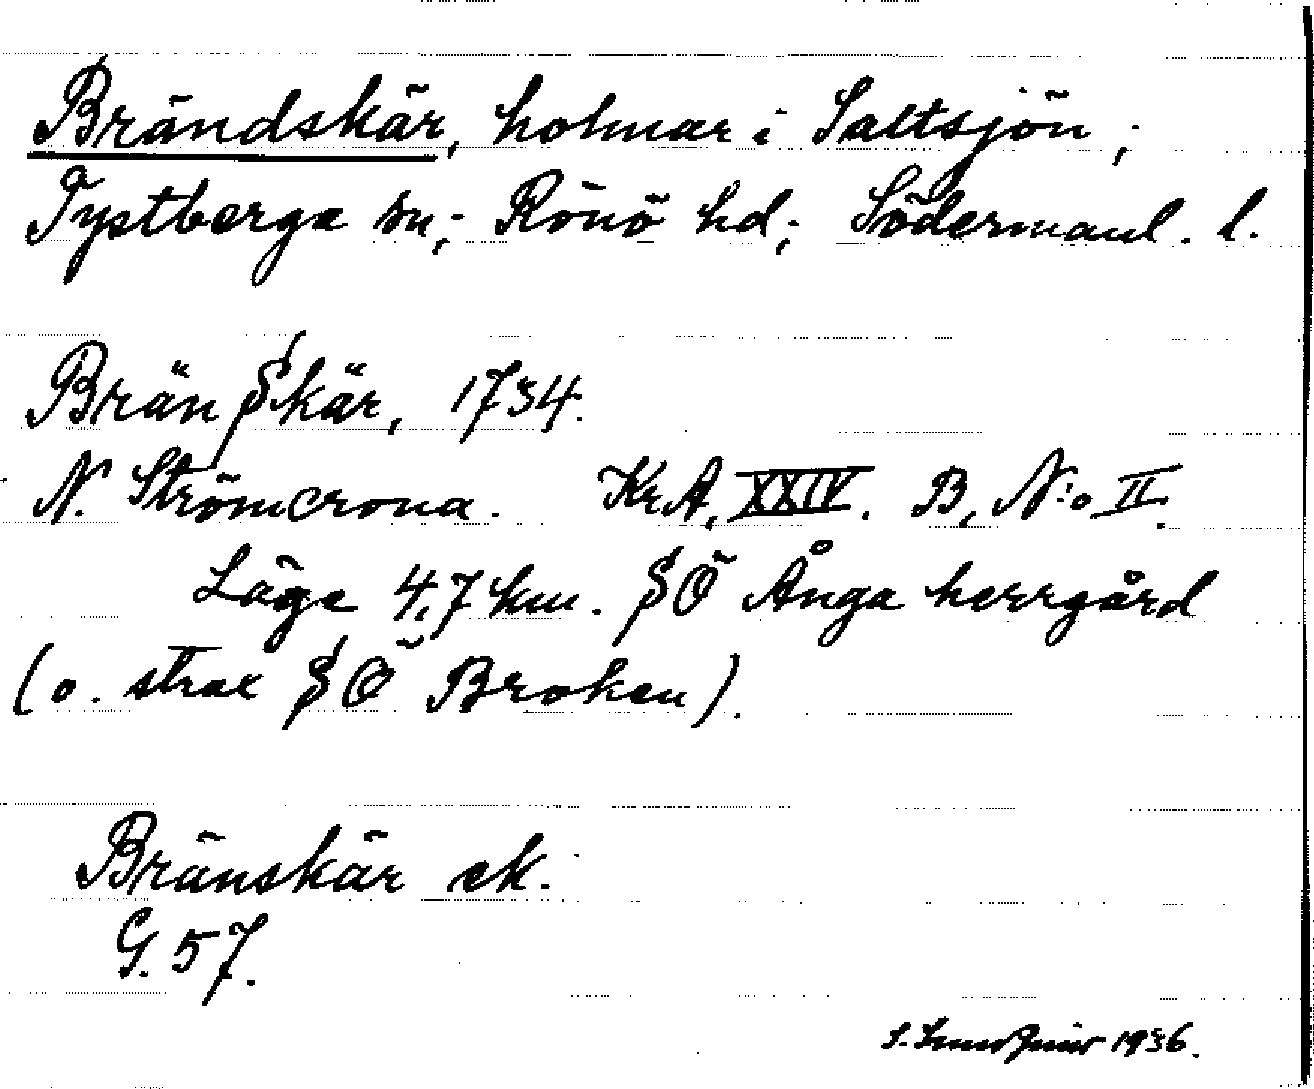 Brändskär, holmar i Saltsjön,;
Tystberga sn,; Rönö hd,; Södermanl. l.
Bränskär, 1734.
N. Strömcrona. Kr.A. XXIV. B, N:o II.
Läge 4,7 km. SÖ Ånga herrgård
(o. strax SÖ Broken).
Bränskär ek.
G. 57.
1936.